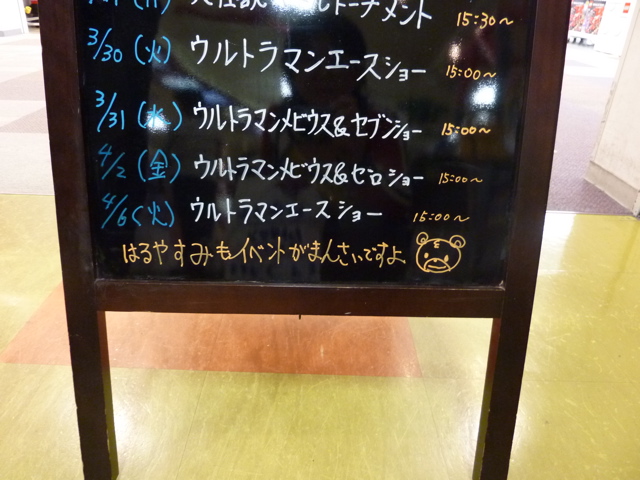 トーナメント 15:30〜
3/30 (火) ウルトラマンエースショー 15:00〜
3/31 (水) ウルトラマンメビウス&セブンショー 15:00〜
4/2 (金) ウルトラマンメビウス&ゼロショー 15:00〜
4/6 (火) ウルトラマンエースショー 15:00〜
はるやすみもイベントがまんさいですよ